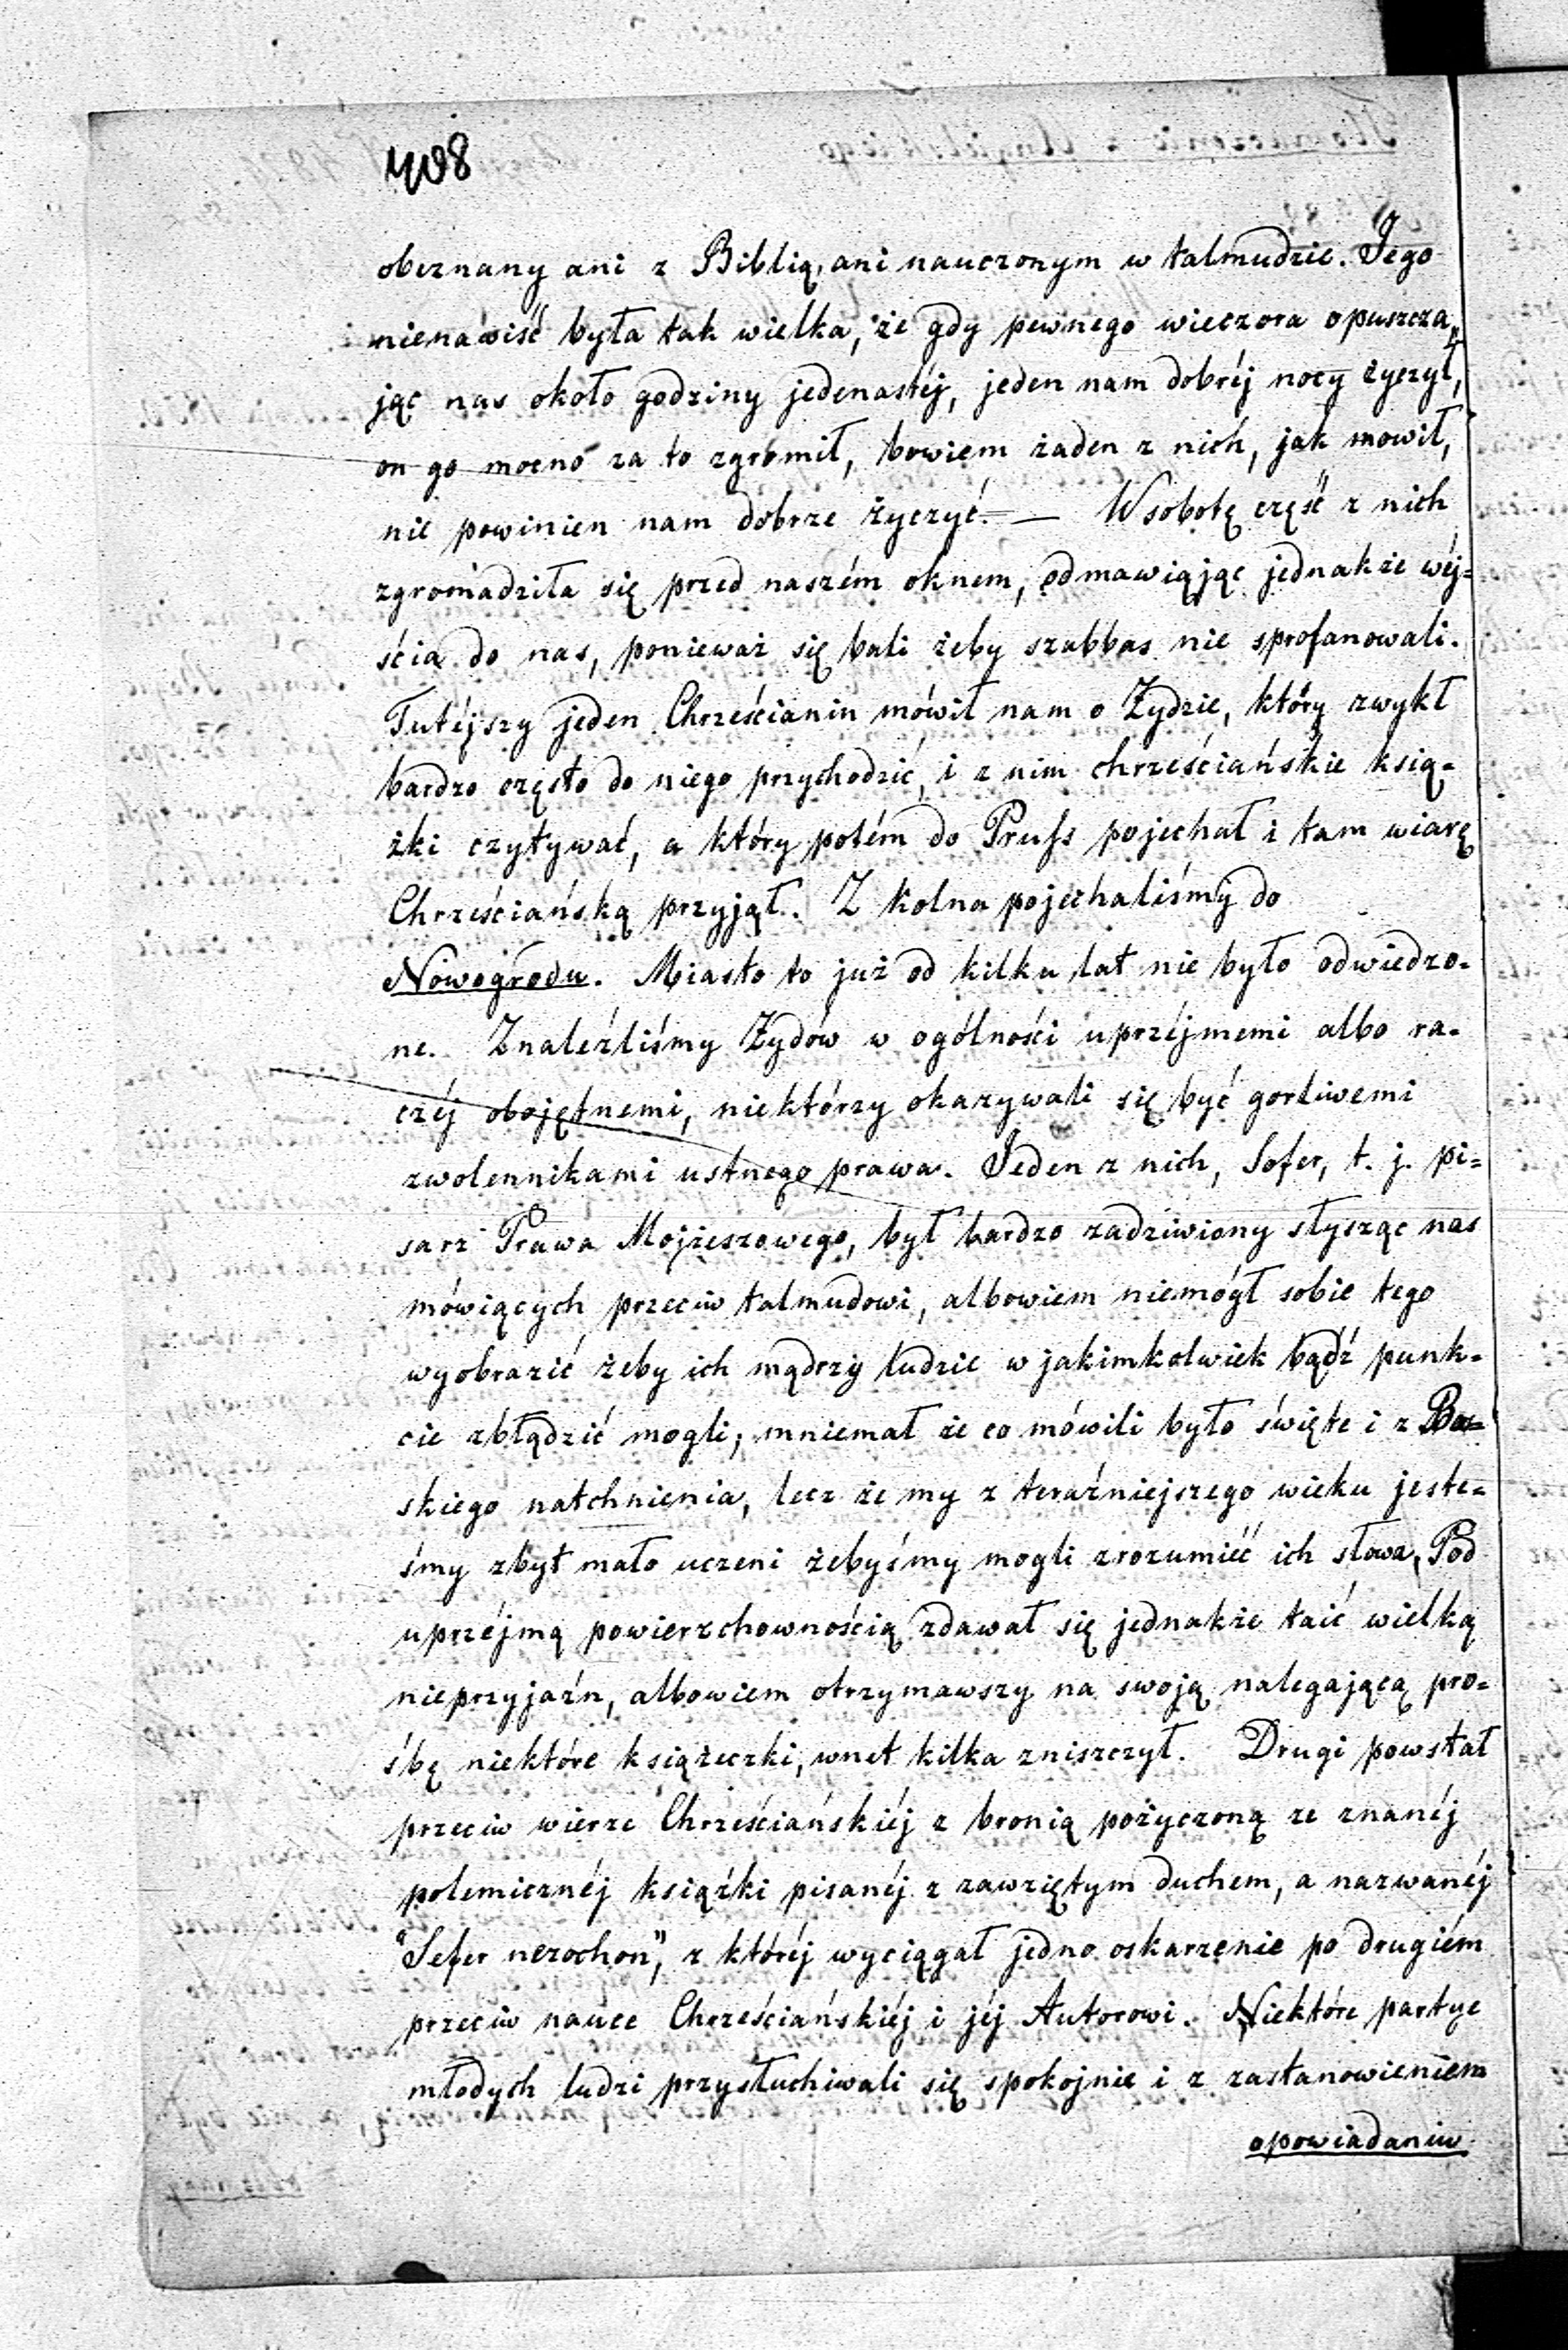 408
obeznany ani z Biblią, ani nauczonym w talmudzie. Jego
nienawiść była tak wielka, że gdy pewnego wieczora opuszcza„
jąc nas około godziny jedenastéj, jeden nam dobréj nocy życzył,
on go mocno za to zgromił, bowiem żaden z nich, jak mowił,
nie powinien nam dobrze życzyć. — W sobotę część z nich
zgromadziła się przed naszém oknem, odmawiąjąc jednakże wéj=
ścia do nas, ponieważ się bali żeby szabbas nie sprofanowali.
Tutéjszy jeden Chrześcianin mówił nam o Żydzie, który zwykł
bardzo często do niego przychodzić, i z nim chrześciańskie ksią=
żki czytywać, a który potém do Pruss pojechał i tam wiarę
Chrześciańską przyjął. Z Kolna pojechaliśmy do
Nowogrodu. Miasto to już od kilku lat nie było odwiedzo=
ne. Znaleźliśmy Żydów w ogólności uprzéjmemi albo ra=
czéj obojętnemi, niektórzy okazywali się być gorliwemi
zwolennikami ustnego prawa. Jeden z nich, Sofer, t. j. pi=
sarz Prawa Mojżeszowego, był bardzo zadziwiony słysząc nas
mówiących przeciw talmudowi, albowiem niemógł sobie tego
wyobrazić żeby ich mądrzy ludzie w jakimkolwiek bądź punk=
cie zbłądzić mogli; mniemał że co mówili było święte i z Bo=
skiego natchnienia, lecz że my z teraźniejszego wieku jeste=
śmy zbyt mało uczeni żebyśmy mogli zrozumiéć ich słowa. Pod
uprzéjmą powierzchownością zdawał się jednakże taić wielką
nieprzyjaźn, albowiem otrzymawszy na swoją nalegającą pro=
śbę niektóre książeczki, wnet kilka zniszczył. Drugi powstał
przeciw wierze Chrześciańskiéj z bronią pożyczoną ze znanéj
polemicznéj książki pisanéj z zawziętym duchem, a nazwanéj
"Sefer nezochon", z któréj wyciągał jedno oskarzenie po drugiém
przeciw nauce Chrześciańskiéj i jéj Autorowi. Niektóre partye
młodych ludzi przysłuchiwali się spokojnie i z zastanowieniem
opowiadaniu